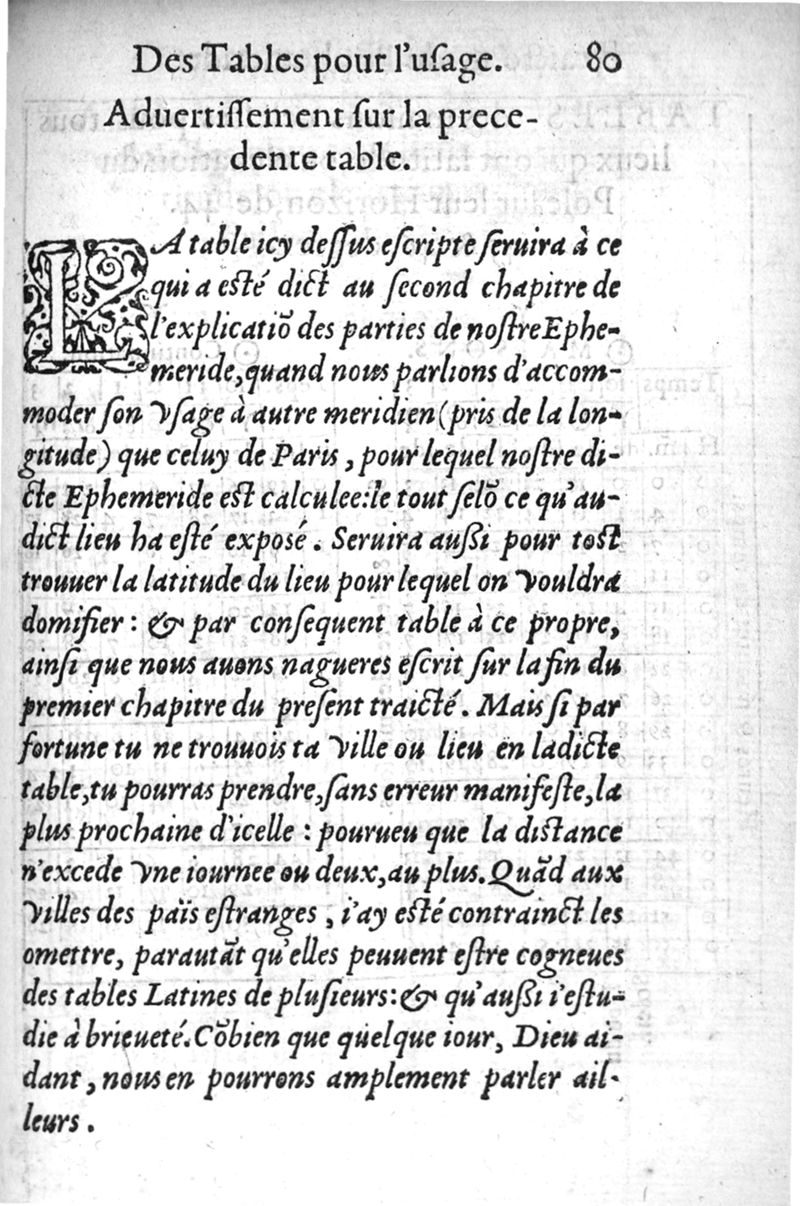 Des Tables pour l'uſage. 80
Aduertiſſement ſur la prece-
dente table.
LA table icy deſſus eſcripte ſeruira à ce
qui a eſté dict au ſecond chapitre de
l'explicatiō des parties de noſtre Ephe-
meride, quand nous parlions d'accom-
moder ſon vſage à autre meridien (pris de la lon-
gitude) que celuy de Paris, pour lequel noſtre di-
cte Ephemeride eſt calculee: le tout ſelō ce qu'au-
dict lieu ha eſté exposé. Seruira auſſi pour toſt
trouuer la latitude du lieu pour lequel on vouldra
domifier: & par conſequent table à ce propre,
ainſi que nous auons nagueres eſcrit ſur la fin du
premier chapitre du preſent traicté. Mais ſi par
fortune tu ne trouuois ta ville ou lieu en ladicte
table, tu pourras prendre, ſans erreur manifeſte, la
plus prochaine d'icelle: pourueu que la diſtance
n'excede vne iournee ou deux, au plus. Quād aux
villes des païs eſtranges, i'ay eſté contrainct les
omettre, parautāt qu'elles peuuent eſtre cogneues
des tables Latines de pluſieurs: & qu'auſſi i'eſtu-
die à brieueté. Cōbien que quelque iour, Dieu ai-
dant, nous en pourrons amplement parler ail-
leurs.